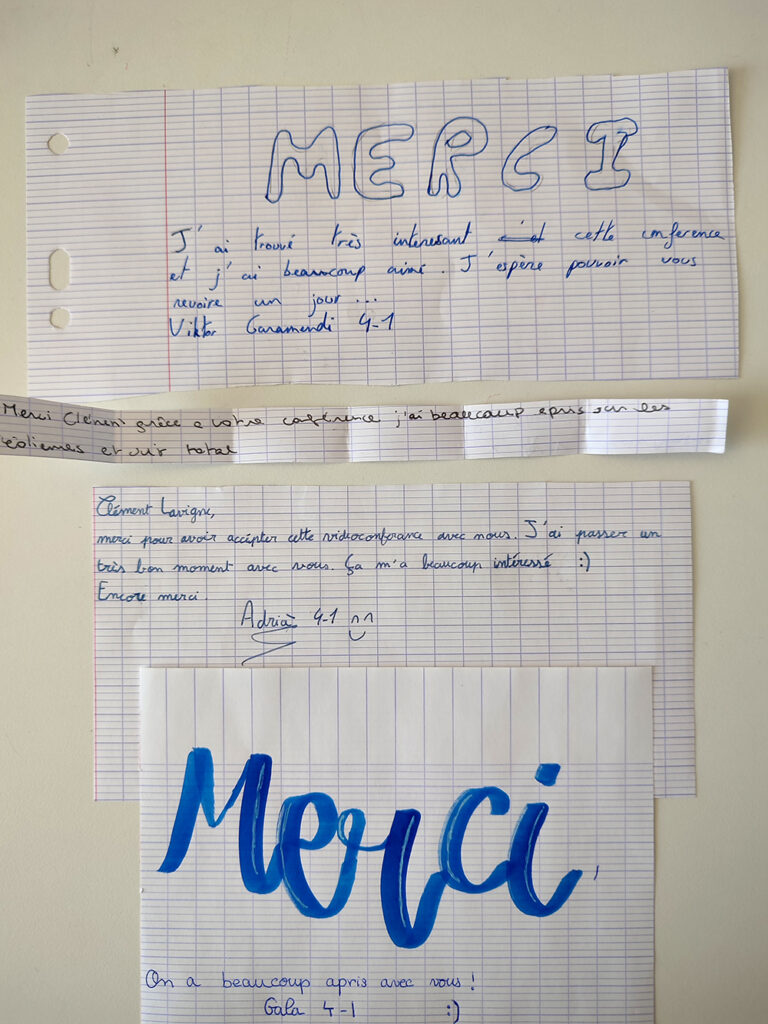 MERCI
J'ai trouvé très interesant c'et cette conference
et j'ai beaucoup aimé. J'espère pouvoir vous
revoire un jour ...
Viktor Garamendi 4-1
Merci Clément grâce a votre conférence j'ai beaucoup apris sur les
éoliennes et sur total
Clément Lavigne,
merci pour avoir accépter cette vidéoconférance avec nous. J'ai passer un
très bon moment avec vous. Ça m'a beaucoup intéressé :)
Encore merci.
Adrià 4-1
Merci,
On a beaucoup apris avec vous!
Gala 4-1 :)